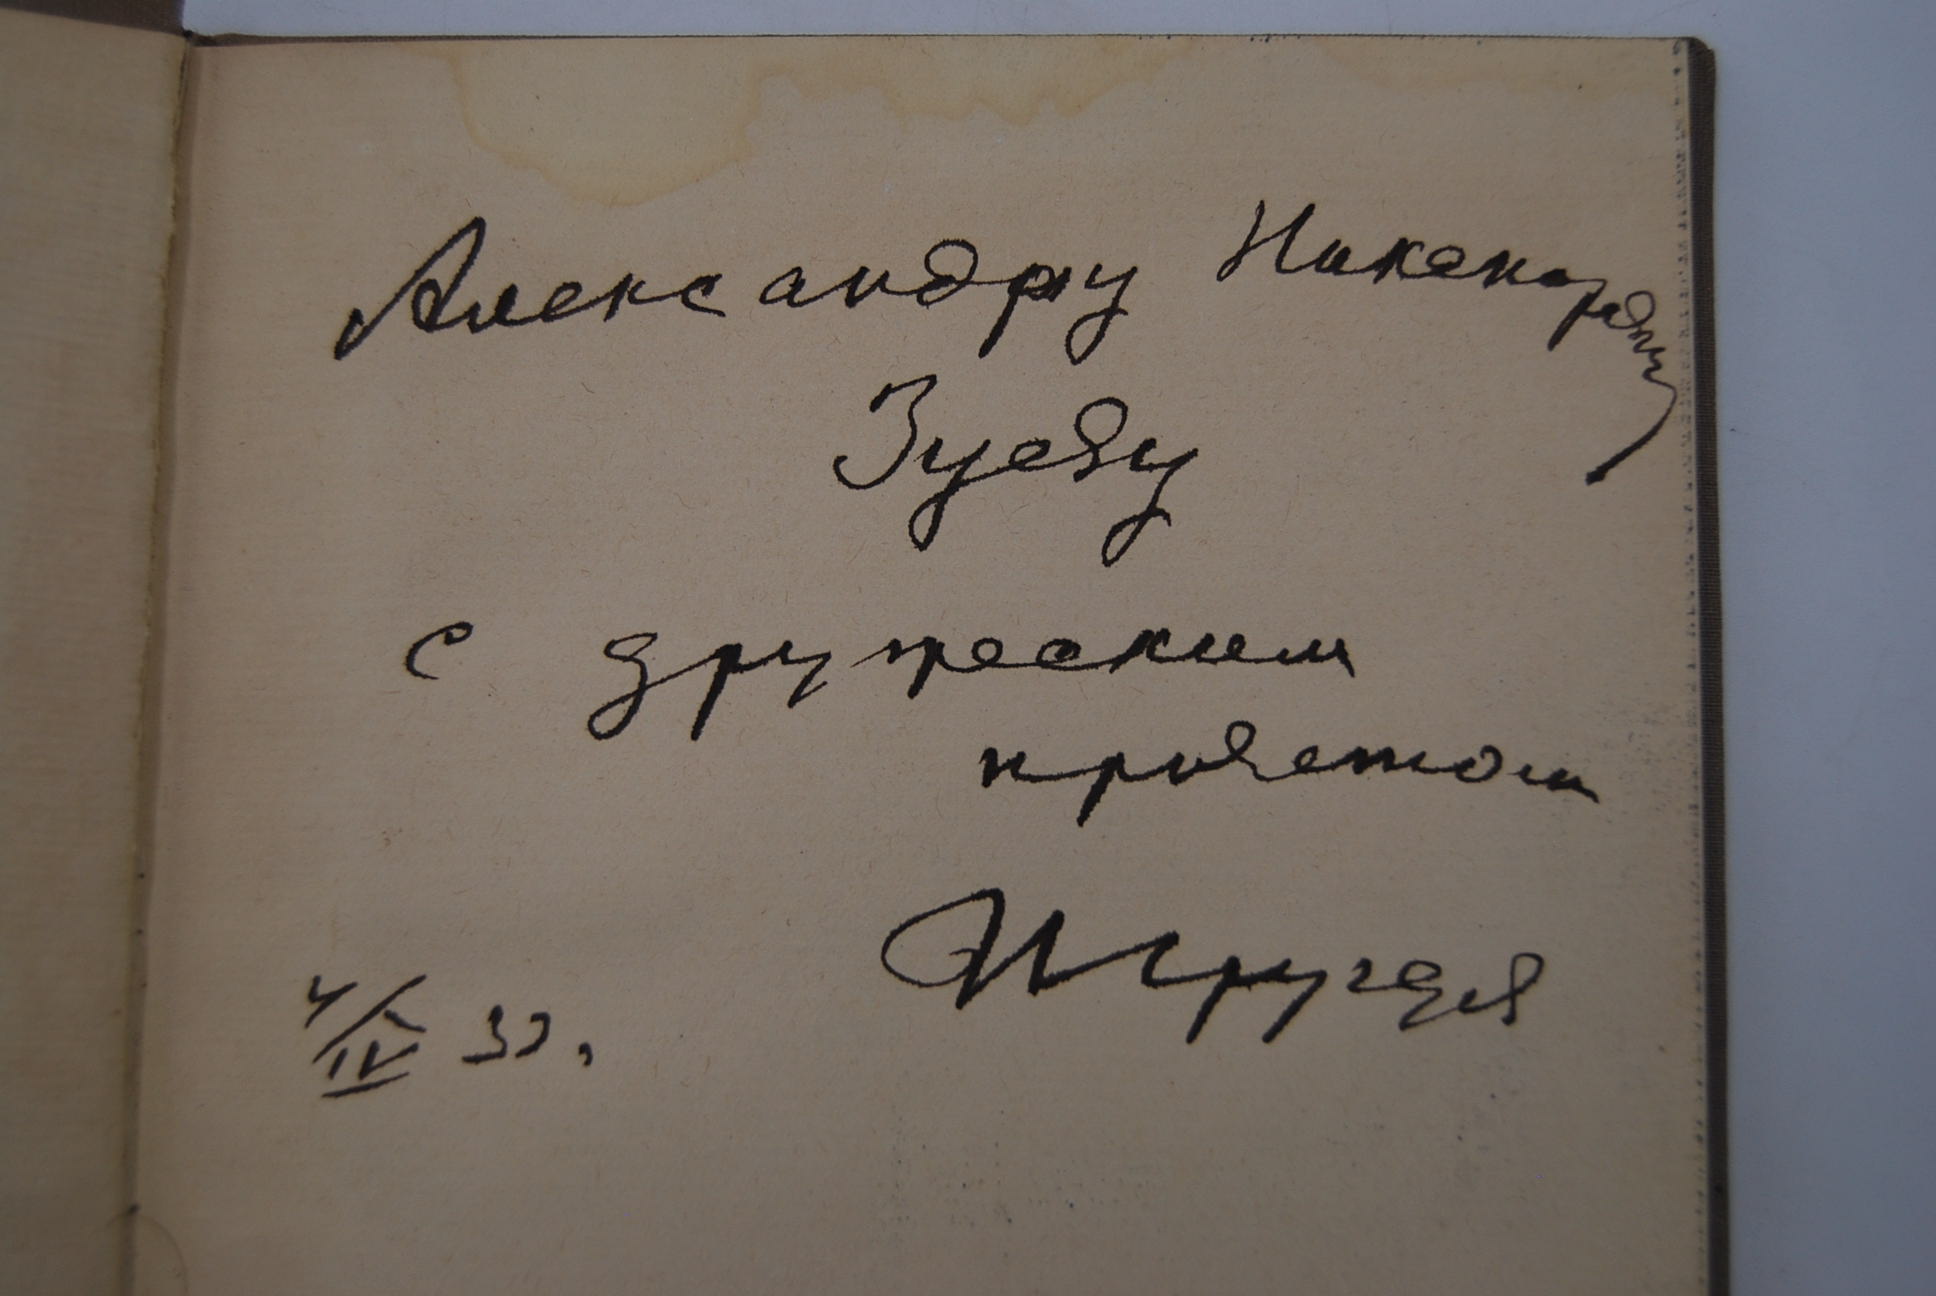 Александру Никандровичу
Зуеву
с дружеским
приветом
И Груздев
4/IV 33.